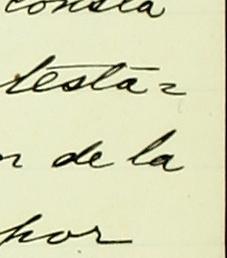 consta
testa=
de la
por